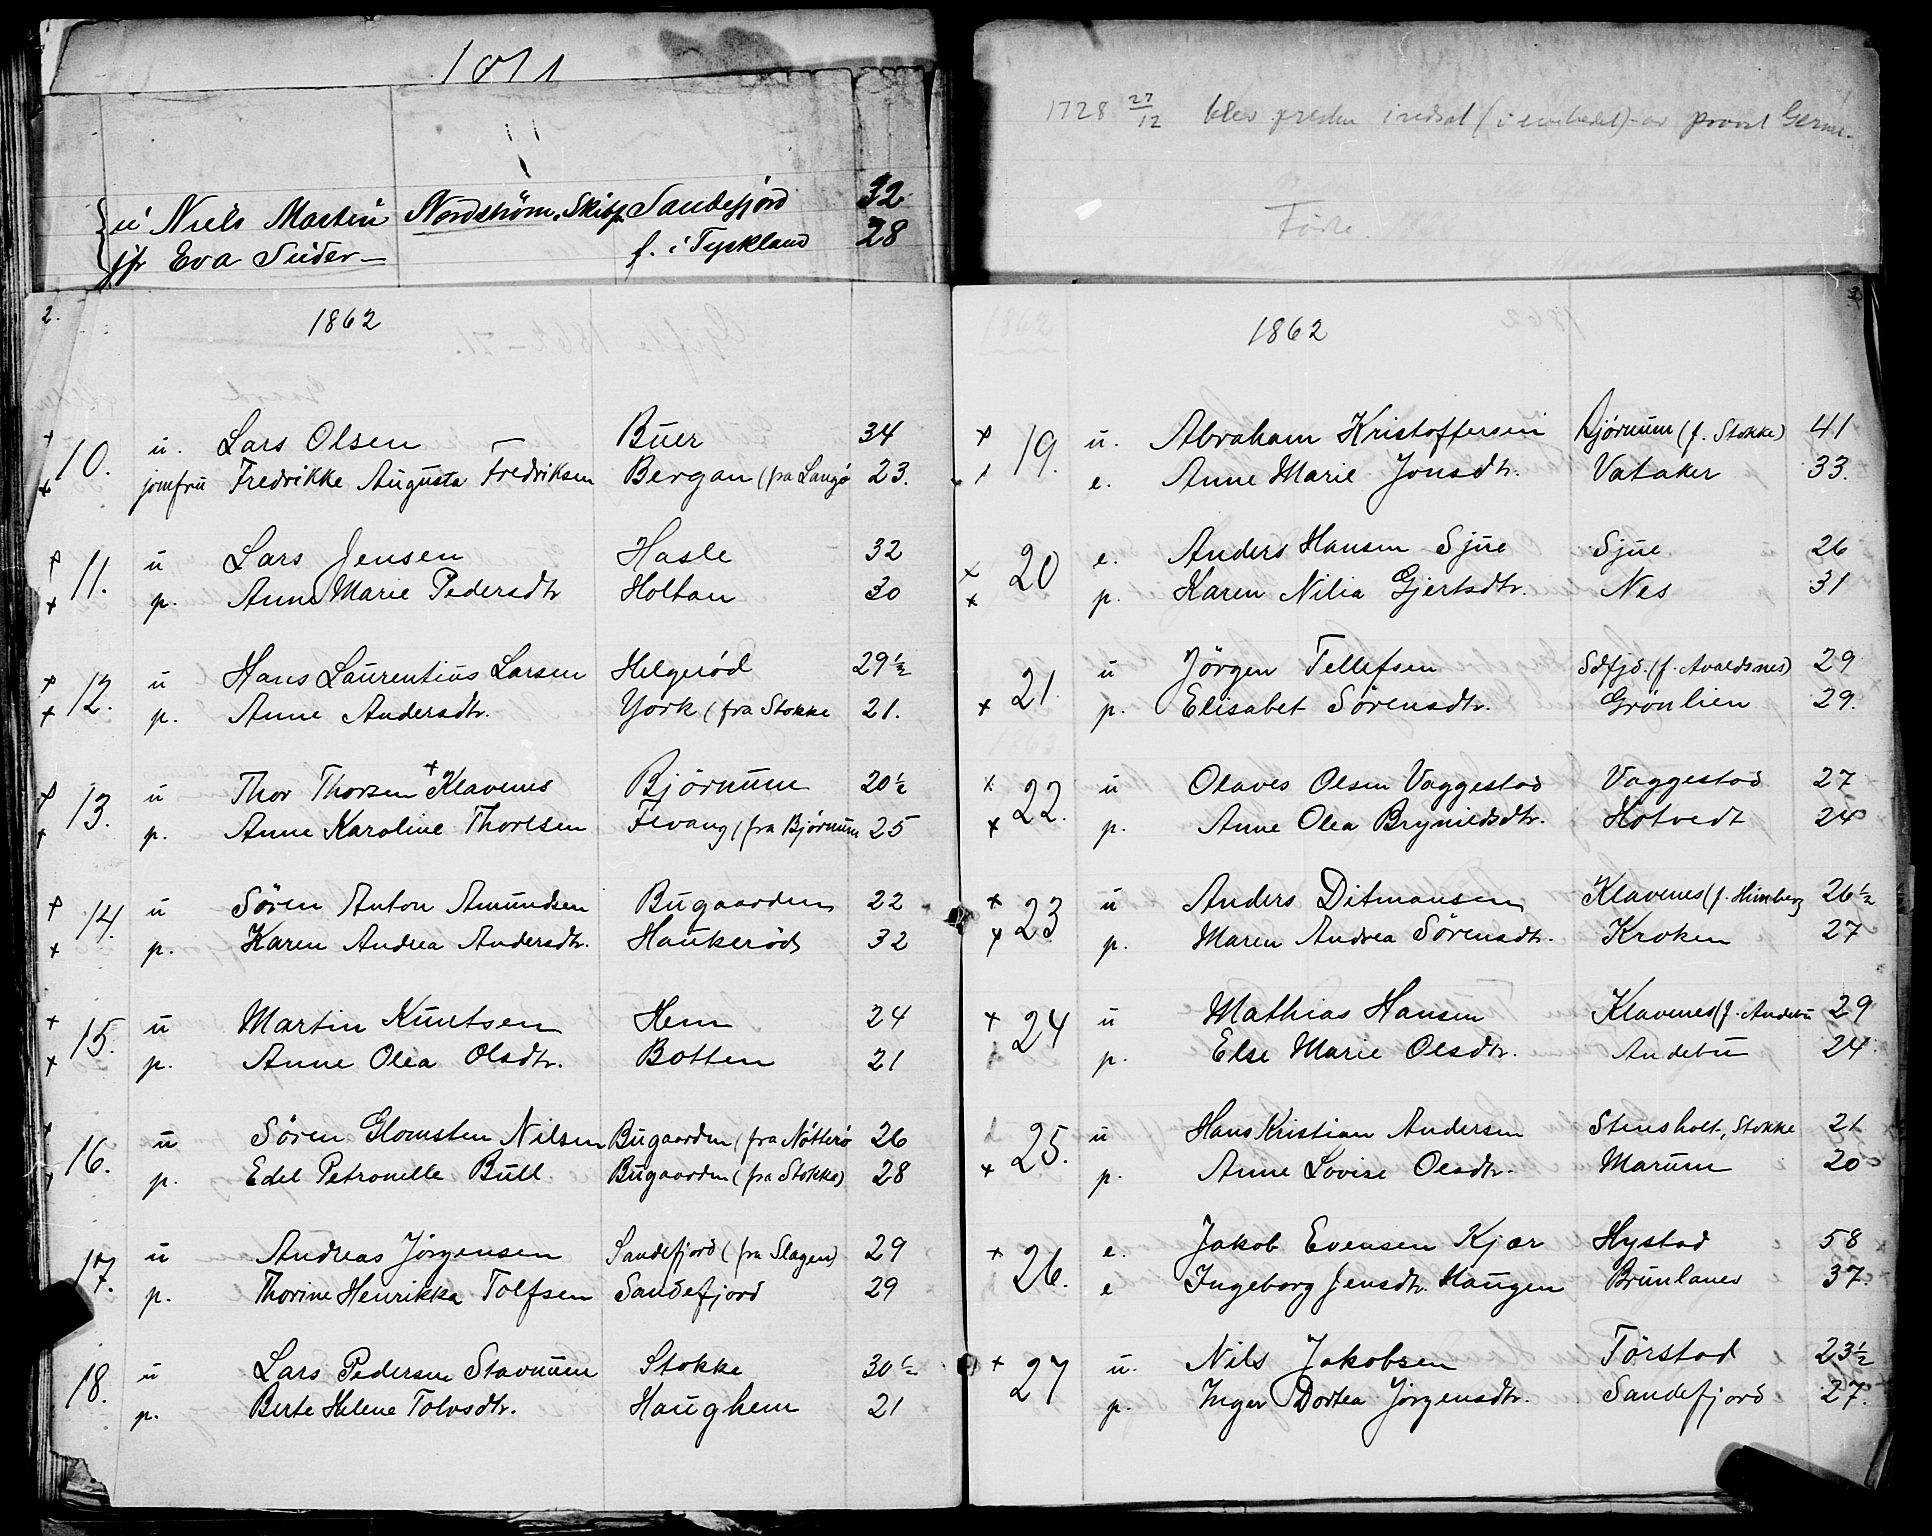 1871
u Niels Martin Nordström, Skibsf. Sandefjord 32
jfr Eva Suder f. i Tyskland 28
2.
1862
10. u. Lars Olsen Buer 34
jomfru Fredrikke Augusta Fredriksen Bergan (fra Langö 23.
11. u Lars Jensen Hasle 32
p. Anne Marie Pedersdtr Holtan 30
12. u Hans Laurentius Larsen Helgeröd 29½
p. Anne Andersdtr. York (fra Stokke 21.
13. u Thor Thorsen Klavenes Bjørnum 20½
p. Anne Karoline Thorlsen Fevang (fra Bjørnum 25
14. u Sören Anton Amundsen Bugaarden 22
p. Karen Andrea Andersdtr. Haukeröd 32
15. u Martin Knutsen Hem 24
p. Anne Olea Olsdtr. Botten 21
16. u Sören Glomsten Nilsen Bugaarden (fra Nötterö 26
p. Edel Petronelle Bull Bugaarden (fra Stokke) 28
17. u Andreas Jörgensen Sandefjord (fra Slagen) 29
p. Thorine Henrikka Tolfsen Sandefjord 29
18. u Lars Pedersen Stavnum Stokke 30½
p. Berte Helene Tolvsdtr. Haughem 21
1728 27/12 blev presten indsat (i embedet) av provst
Födte.
3
1862
19. u. Abraham Kristoffersen Bjørnum (f. Stokke) 41
e. Anne Marie Jonsdtr. Vataker 33.
20 e. Anders Hansen Sjue Sjue 26
p. Karen Nilia Gjertsdtr. Nes 31
21 u Jörgen Tellefsen Sdfjd. (f. Avaldsnes) 29
p. Elisabet Sörensdtr. Grönlien 29.
22. u Olaves Olsen Vaggestad Vaggestad 27
p. Anne Olea Brynildsdtr. Hotvedt 24
23 u Anders Ditmansen Klavenes (f. Himberg 26½
p. Maren Andrea Sörensdtr. Kroken 27
24 u Mathias Hansen Klavenes (f. Andebu 29
p. Else Marie Olsdtr. Andebu 24
25. u Hans Kristian Andersen Stensholt, Stokke 21
p. Anne Lovise Olsdtr. Marum 20
26. e. Jakob Evensen Kjær Hystad 58
e Ingeborg Jensdtr. Haugen Brunlanes 37.
27 u. Nils Jakobsen Törstad 23½
p. Inger Dortea Jörgensdtr. Sandefjord 27.